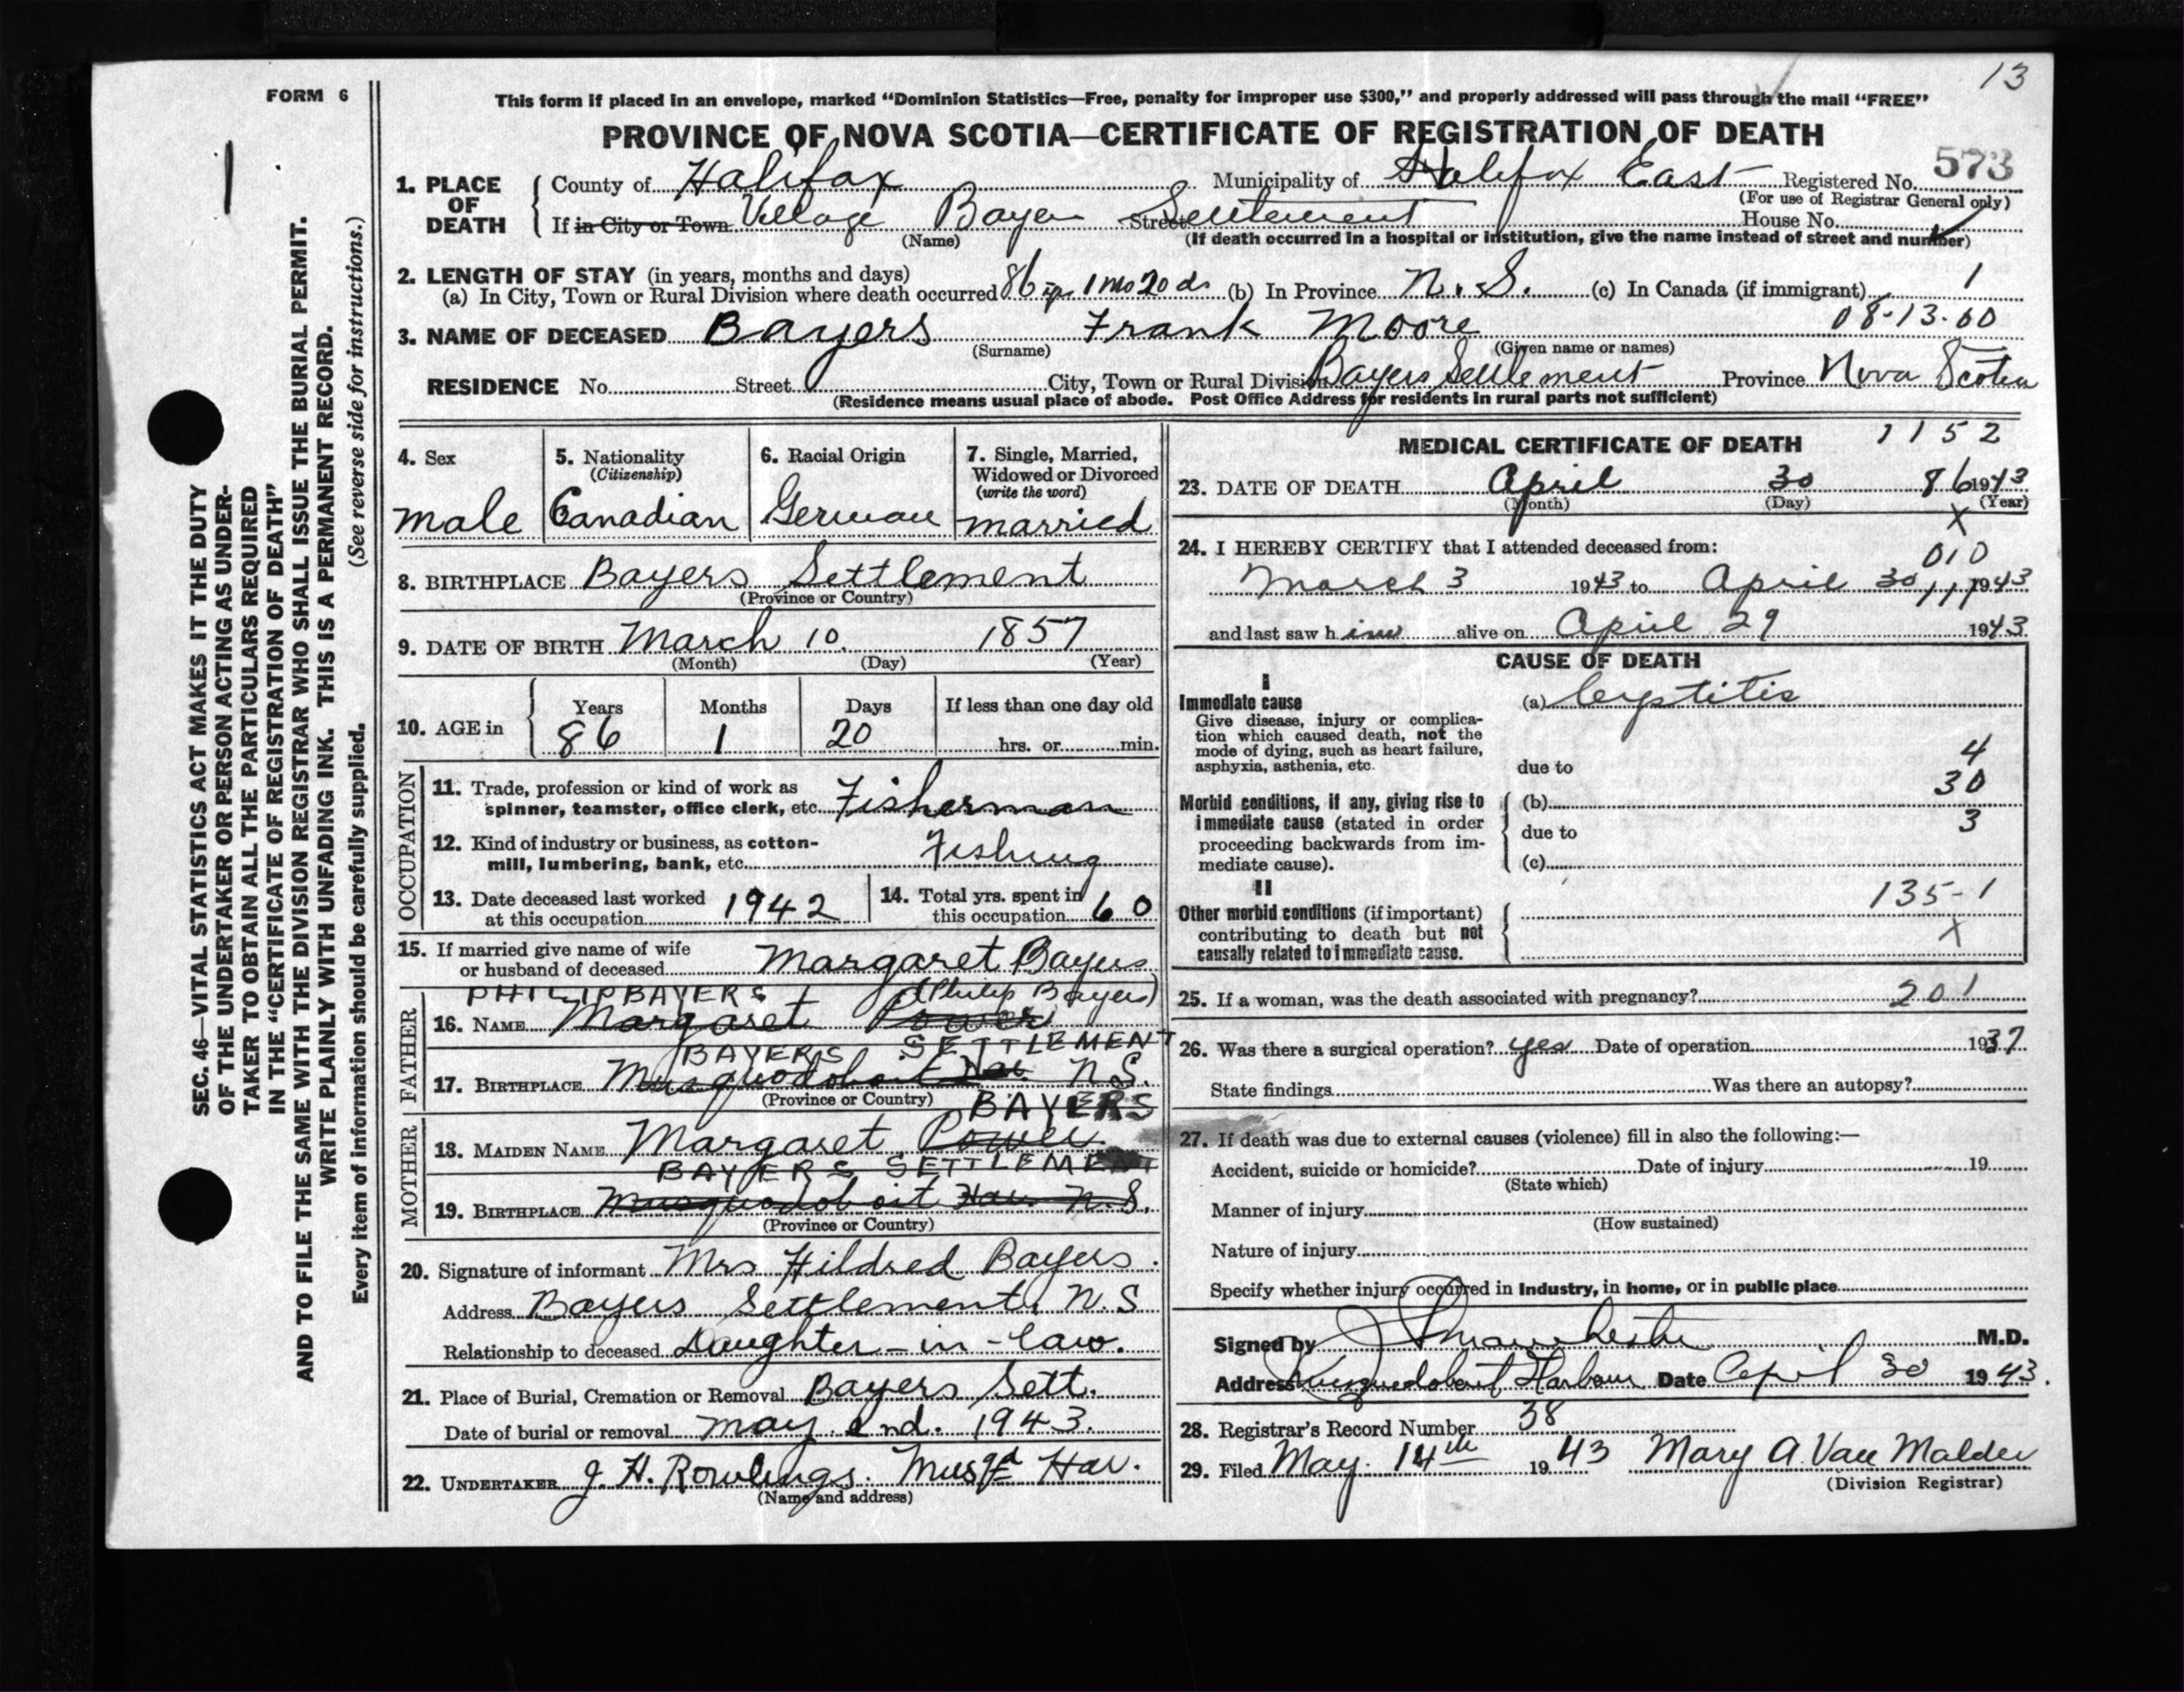 13
FORM 6
This form if placed in an envelope, marked “Dominion Statistics—Free, penalty for improper use $300,” and properly addressed will pass through the mail “FREE”
PROVINCE OF NOVA SCOTIA—CERTIFICATE OF REGISTRATION OF DEATH
573
1. PLACE OF DEATH
County of Halifax Municipality of Halifax East Registered No.
(For use of Registrar General only)
If in City or Town Village Bayers Street Settlement House No.
(Name) (If death occurred in a hospital or institution, give the name instead of street and number)
2. LENGTH OF STAY (in years, months and days)
(a) In City, Town or Rural Division where death occurred 86 yr 1 mo 20 ds (b) In Province N.S. (c) In Canada (if immigrant) 1
08-13-00
3. NAME OF DECEASED Bayers Frank Moore
(Surname) (Given name or names)
RESIDENCE No. Street City, Town or Rural Division Bayers Settlement Province Nova Scotia
(Residence means usual place of abode. Post Office Address for residents in rural parts not sufficient)
4. Sex
male
5. Nationality
(Citizenship)
Canadian
6. Racial Origin
German
7. Single, Married,
Widowed or Divorced
(write the word)
married
8. BIRTHPLACE Bayers Settlement
(Province or Country)
9. DATE OF BIRTH March 10. 1857
(Month) (Day) (Year)
10. AGE in
Years Months Days If less than one day old
86 1 20 hrs. or min.
OCCUPATION
11. Trade, profession or kind of work as
spinner, teamster, office clerk, etc. Fisherman
12. Kind of industry or business, as cotton-
mill, lumbering, bank, etc. Fishing
13. Date deceased last worked
at this occupation 1942
14. Total yrs. spent in
this occupation 60
15. If married give name of wife
or husband of deceased Margaret Bayers
PHILIP BAYERS (Philip Bayers)
FATHER
16. NAME Margaret Power
BAYERS SETTLEMENT
17. BIRTHPLACE Musquodoboit Har. N.S.
(Province or Country)
BAYERS
MOTHER
18. MAIDEN NAME Margaret Power
BAYERS SETTLEMENT
19. BIRTHPLACE Musquodoboit Har. N.S.
(Province or Country)
20. Signature of informant Mrs Hildred Bayers.
Address Bayers Settlement, N.S
Relationship to deceased Daughter-in-law.
21. Place of Burial, Cremation or Removal Bayers Sett.
Date of burial or removal May 2nd. 1943.
22. UNDERTAKER J. H. Rowlings. Musqd Har.
(Name and address)
MEDICAL CERTIFICATE OF DEATH 1152
23. DATE OF DEATH April 30 86 1943
(Month) (Day) (Year)
X
24. I HEREBY CERTIFY that I attended deceased from:
010
March 3 1943 to April 30 1943
111
and last saw him alive on April 29 1943
CAUSE OF DEATH
I
Immediate cause
Give disease, injury or complica-
tion which caused death, not the
mode of dying, such as heart failure,
asphyxia, asthenia, etc.
(a) Cystitis
4
due to
30
Morbid conditions, if any, giving rise to
immediate cause (stated in order
proceeding backwards from im-
mediate cause).
(b)
3
due to
(c)
II
135-1
Other morbid conditions (if important)
contributing to death but not
causally related to immediate cause.
X
25. If a woman, was the death associated with pregnancy? 201
26. Was there a surgical operation? yes Date of operation 1937
State findings Was there an autopsy?
27. If death was due to external causes (violence) fill in also the following:—
Accident, suicide or homicide? Date of injury 19
(State which)
Manner of injury
(How sustained)
Nature of injury
Specify whether injury occurred in industry, in home, or in public place
Signed by M.D.
Address Musquodoboit Harbour Date April 30 1943.
28. Registrar’s Record Number 38
29. Filed May 14th 1943 Mary A. Van Malder
(Division Registrar)
SEC. 46—VITAL STATISTICS ACT MAKES IT THE DUTY
OF THE UNDERTAKER OR PERSON ACTING AS UNDER-
TAKER TO OBTAIN ALL THE PARTICULARS REQUIRED
IN THE “CERTIFICATE OF REGISTRATION OF DEATH”
AND TO FILE THE SAME WITH THE DIVISION REGISTRAR WHO SHALL ISSUE THE BURIAL PERMIT.
WRITE PLAINLY WITH UNFADING INK. THIS IS A PERMANENT RECORD.
Every item of information should be carefully supplied. (See reverse side for instructions.)